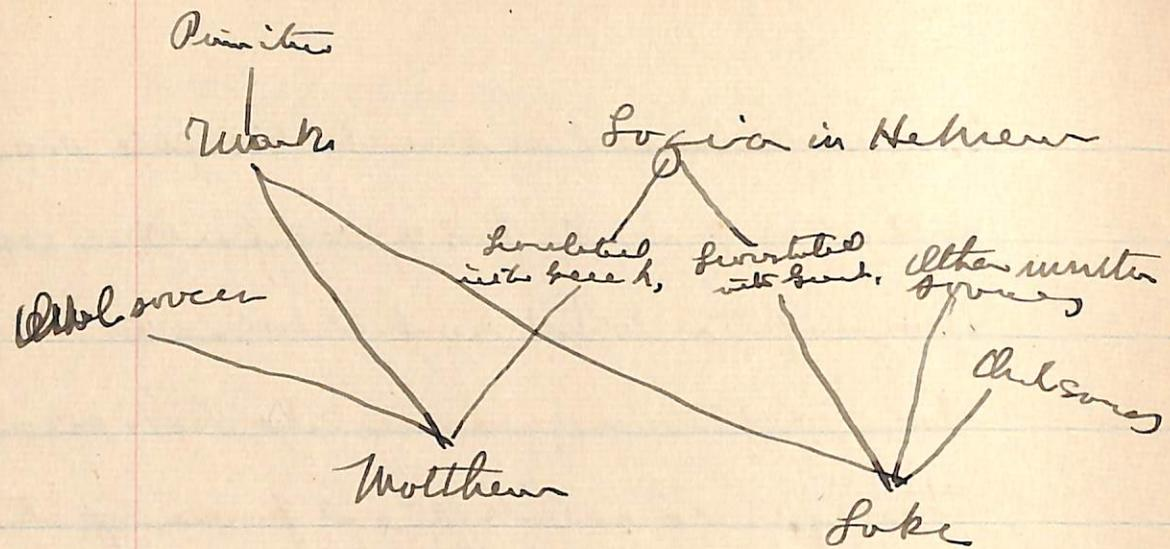 Primitive
Mark
Logia in Hebrew
Translated
into Greek,
Translated
into Greek,
Other written
sources
Oral sources
Oral sources
Matthew
Luke